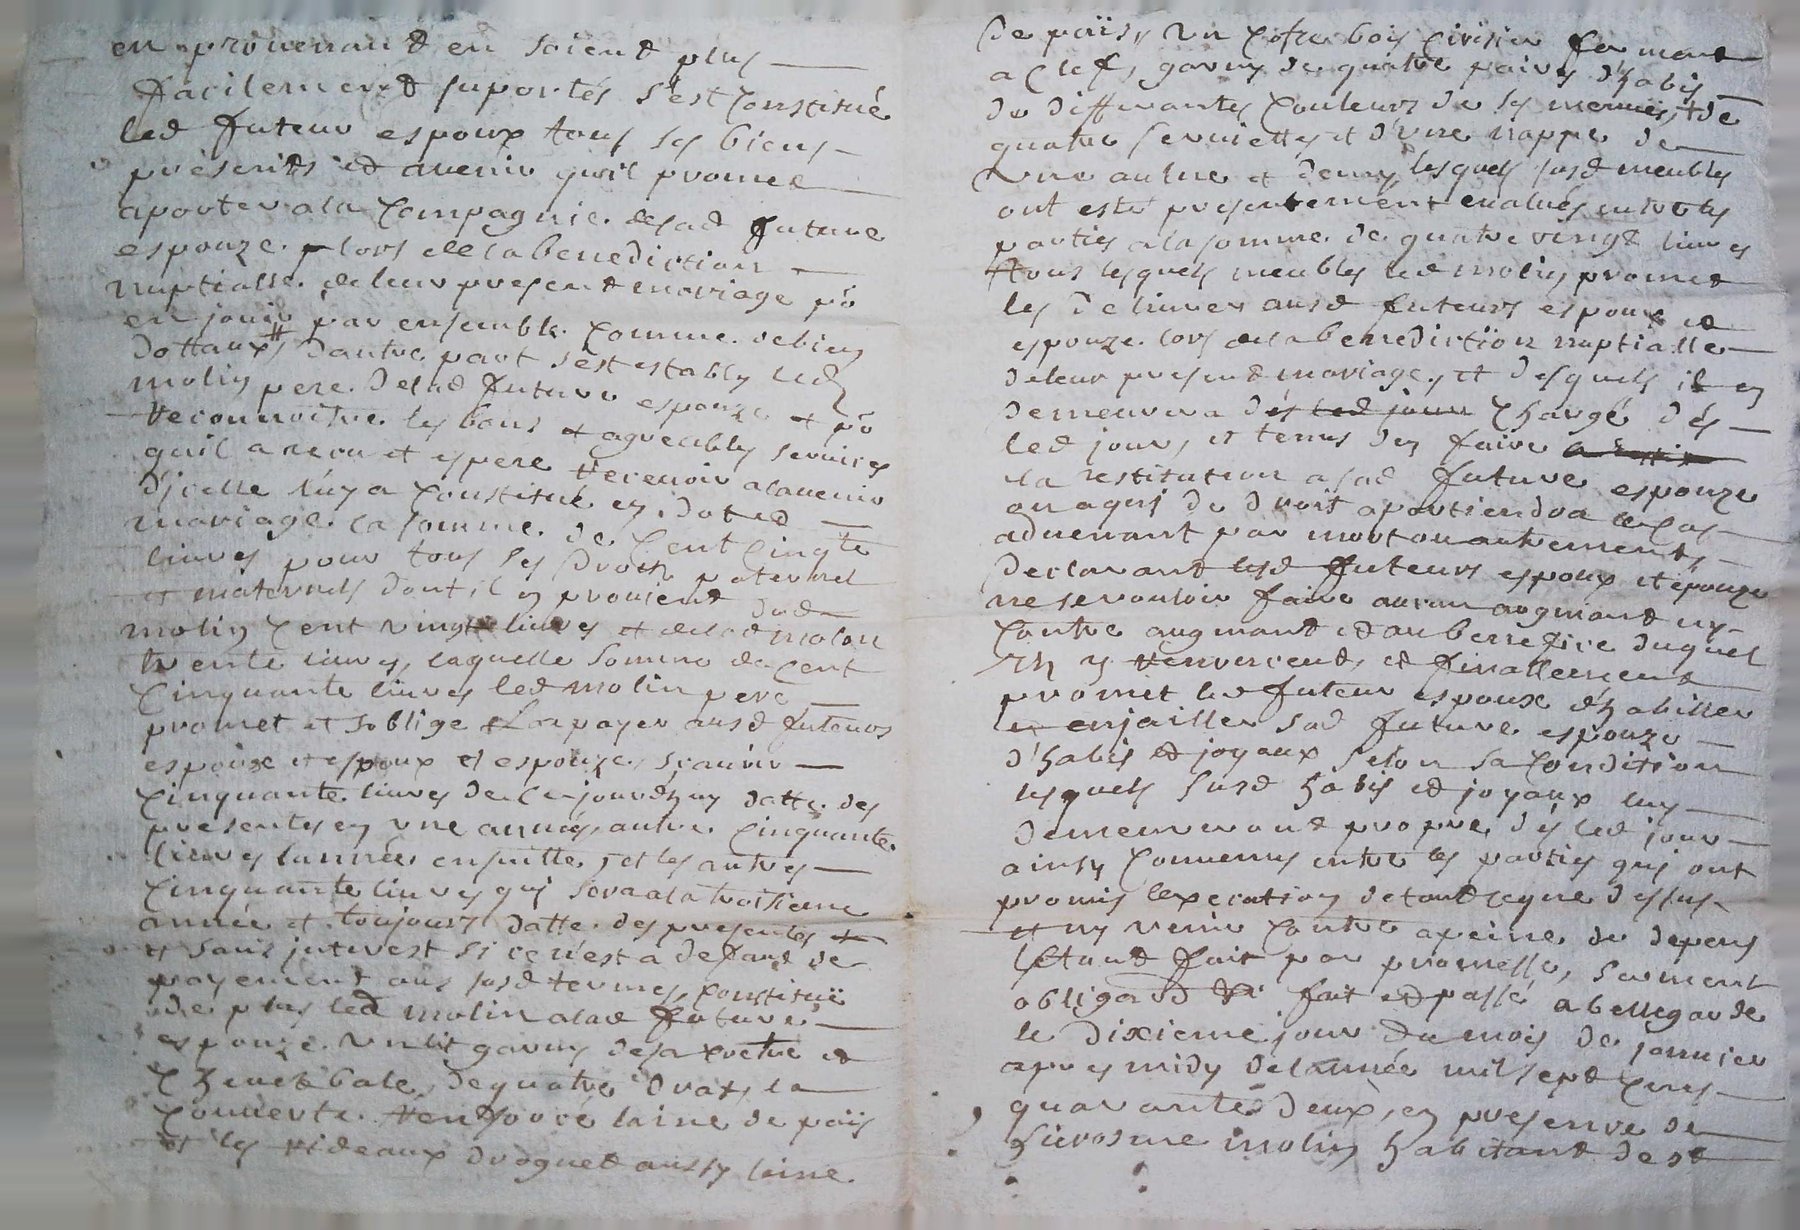 en provenant en soient plus
facilement suportés s'est constitué
led futeur espoux tous ses biens
présents et avenir quil promet
aporter a la compagnie de sad future
espouze lors de la benediction
nuptialle de leur present mariage po
en jouir par ensemble comme de biens
dottaux d'autre part s'est estably led
molin pere de lad future espouze et po
reconnoitre les bons et agreables services
quil a receu et espere recevoir a lavenir
d'jcelle luy a constitué en dot ed
mariage la somme de cent cinqte
livres pour tous ses droits paternel
et maternels dont il en provient dud
molin cent vingt livres et de lad molon
trente livres, laquelle somme de cent
cinquante livres led molin pere
promet et soblige de la payer ausd futeurs
espouse et espoux et espouze, scavoir
cinquante livres de ce jourdhuy datte des
presentes en une année, autre cinquante
livres lannée ensuitte, et les autres
cinquante livres qui sera a la troisieme
année et toujours datte des presentes et
et sans jnterest si ce n'est a defaut de
payement aus susd termes, constitué
de plus led molin a lad future
espouze un lit garny de sa
de quatre draps, la
couverte laine de païs
et les rideaux droguet aussy laine
de païs, un cofre bois cirisier fermant
a clef, garny de quatre paires d'habis
de differantes couleurs de ses menues, et de
quatre serviettes et d'une nappe de
une aulne et demy, lesquels susd meubles
ont esté presentement evalués entre les
parties a la somme de quatre vingt livres
tous lesquels meubles led molin promet
les delivrer ausd futeurs espoux et
espouze lors de la benediction nuptialle
de leur present mariage, et desquels il en
demeurera dés led jour chargé dés
led jour, et tenus den faire
la restitution a sad future espouze
ou a qui de droit apartiendra le cas
advenant par mort ou autrement,
declarant lesd futeurs espoux et épouze
ne se vouloir faire aucun augmant ny
contre augmant et au benefice duquel
ils y renoncent, et finallement
promet led futeur espoux d'habiller
et enjailler sad future espouze
d'habis et joyaux selon sa condition
lesquels susd habis et joyaux luy
demeureront propre dés led jour
ainsy convenus entre les parties qui ont
promis lexecution de tout ce que dessus
et ny venir contre a peine de depens
l'étant fait par promesse, serment
obligaod fait et passé a bellegarde
le dixieme jour du mois de janvier
apres midy de lannée mil sept cens
quarante deux, en presence de
hierosme molin habitant de st